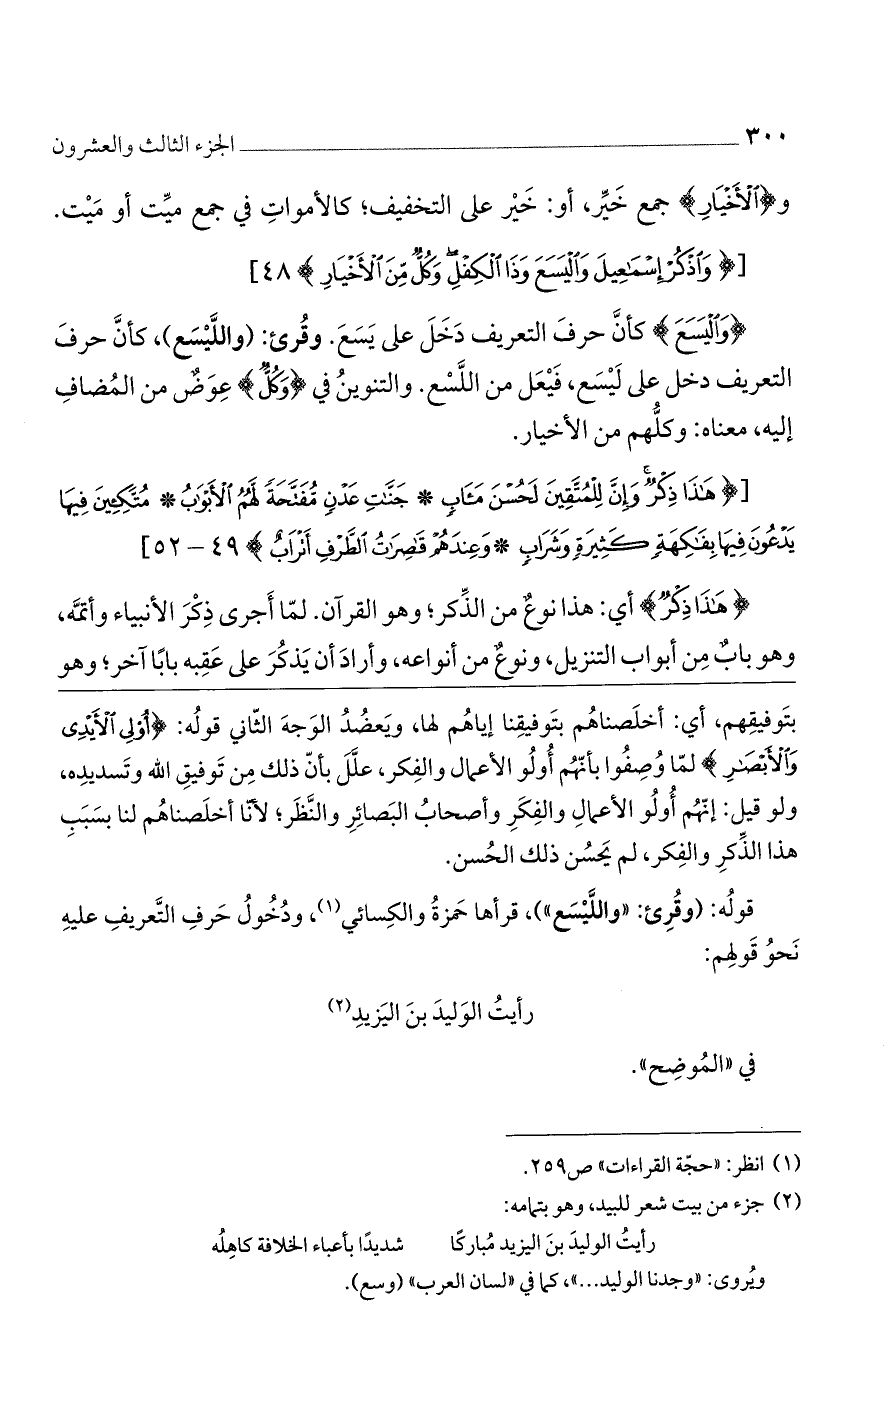 ٣٠٠ ــــــــــ الجزء الثالث والعشرون
و﴿ٱلْأَخْيَارِ﴾ جمع خَيِّر، أو: خَيْر على التخفيف؛ كالأمواتِ في جمع ميِّت أو مَيْت.
[﴿وَٱذْكُرْ إِسْمَٰعِيلَ وَٱلْيَسَعَ وَذَا ٱلْكِفْلِۖ وَكُلٌّ مِّنَ ٱلْأَخْيَارِ﴾ ٤٨]
﴿وَٱلْيَسَعَ﴾ كأنَّ حرفَ التعريف دَخَلَ على يَسَعَ. وقُرئ: (واللَّيْسَع)، كأنَّ حرفَ
التعريف دخل على لَيْسَع، فَيْعَل من اللَّسْع. والتنوينُ في ﴿وَكُلٌّ﴾ عِوَضٌ من المُضافِ
إليه، معناه: وكلُّهم من الأخيار.
[﴿هَٰذَا ذِكْرٌۚ وَإِنَّ لِلْمُتَّقِينَ لَحُسْنَ مَـَٔابٍ * جَنَّٰتِ عَدْنٍ مُّفَتَّحَةً لَّهُمُ ٱلْأَبْوَٰبُ * مُتَّكِـِٔينَ فِيهَا
يَدْعُونَ فِيهَا بِفَٰكِهَةٍ كَثِيرَةٍ وَشَرَابٍ * وَعِندَهُمْ قَٰصِرَٰتُ ٱلطَّرْفِ أَتْرَابٌ﴾ ٤٩ – ٥٢]
﴿هَٰذَا ذِكْرٌ﴾ أي: هذا نوعٌ من الذِّكر؛ وهو القرآن. لمّا أَجرى ذِكْرَ الأنبياء وأتمَّه،
وهو بابٌ مِن أبواب التنزيل، ونوعٌ من أنواعه، وأرادَ أن يَذكُرَ على عَقِبه بابًا آخر؛ وهو
بتَوفيقِهم، أي: أخلَصناهُم بتَوفيقِنا إياهُم لها، ويَعضُدُ الوَجهَ الثّاني قولُه: ﴿أُو۟لِى ٱلْأَيْدِى
وَٱلْأَبْصَٰرِ﴾ لمّا وُصِفُوا بأنّهُم أُولُو الأعمالِ والفِكر، علَّلَ بأنّ ذلك مِن تَوفيقِ الله وتَسديدِه،
ولو قيل: إنّهُم أُولُو الأعمالِ والفِكَرِ وأصحابُ البَصائِرِ والنَّظَر؛ لأنّا أخلَصناهُم لنا بسَبَبِ
هذا الذِّكرِ والفِكر، لم يَحسُن ذلك الحُسن.
قولُه: (وقُرِئ: «واللَّيْسَع»)، قرأها حَمزةُ والكِسائي(١)، ودُخُولُ حَرفِ التَّعريفِ عليهِ
نَحوُ قَولِهم:
رأيتُ الوَليدَ بنَ اليَزيدِ(٢)
في «المُوضِح».
(١) انظر: «حجّة القراءات» ص٢٥٩.
(٢) جزء من بيت شعر للبيد، وهو بتمامه:
رأيتُ الوليدَ بنَ اليزيد مُباركًا شديدًا بأعباء الخلافة كاهِلُه
ويُروى: «وجدنا الوليد...»، كما في «لسان العرب» (وسع).